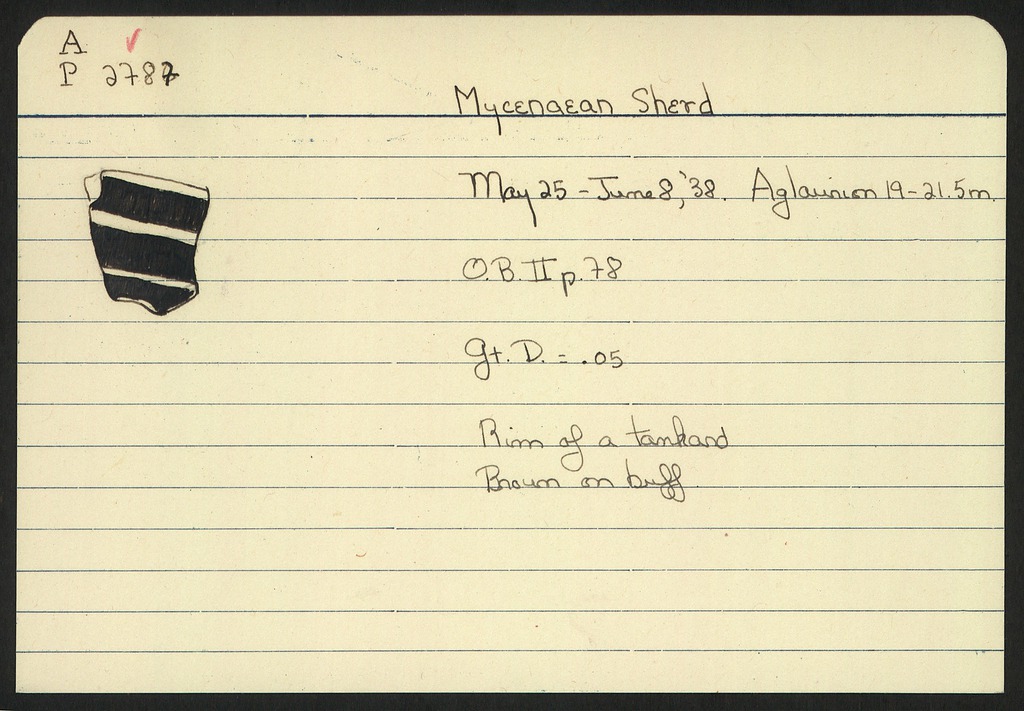 A
P 2787
Mycenaean Sherd
May 25 - June 8, '38. Aglaurion 19-21.5m.
O.B. II p. 78
Gt. D. = .05
Rim of a tankard
Brown on buff